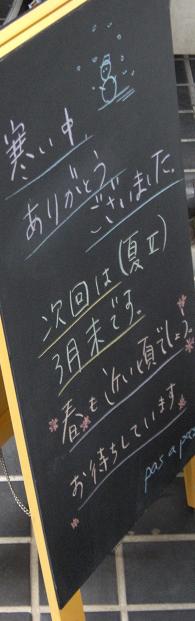 寒い中
ありがとう
ございました
次回は(夏Ⅱ)
3月末です。
春も近い頃でしょう
お待ちしています
pas a pas